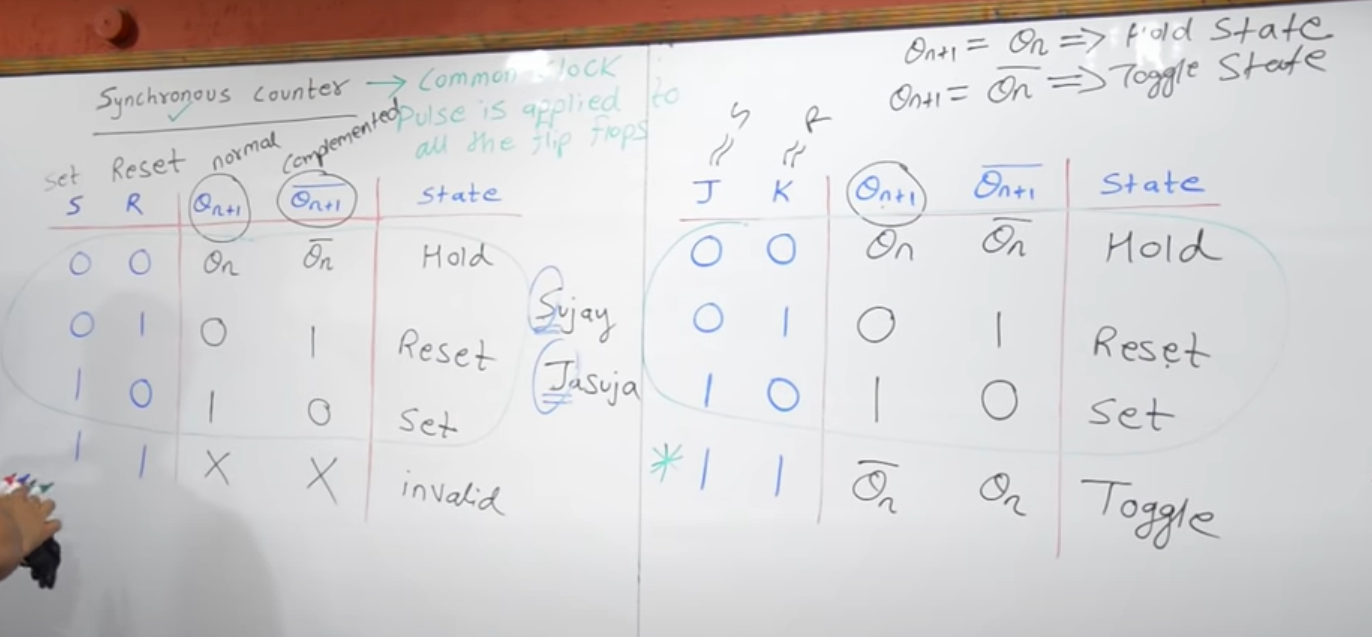 Synchronous counter → Common clock
pulse is applied to
all the flip flops
set Reset normal complemented
S R Qn+1 Q̅n+1 State
0 0 Qn Q̅n Hold
0 1 0 1 Reset
1 0 1 0 Set
1 1 X X invalid
Sujay
Jasuja
Qn+1 = Qn => Hold State
Qn+1 = Q̅n => Toggle State
S R
J K Qn+1 Q̅n+1 State
0 0 Qn Q̅n Hold
0 1 0 1 Reset
1 0 1 0 Set
* 1 1 Q̅n Qn Toggle